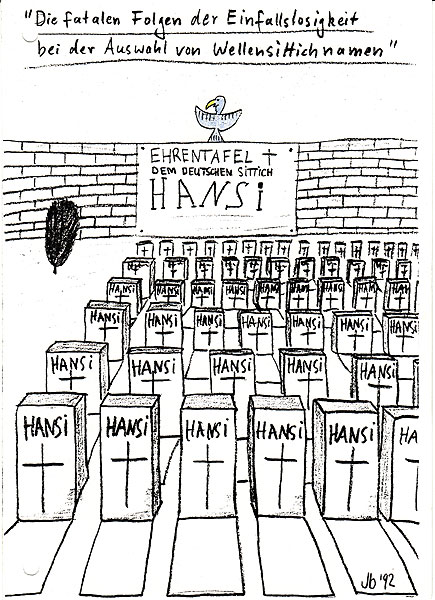 "Die fatalen Folgen der Einfallslosigkeit
bei der Auswahl von Wellensittichnamen"
EHRENTAFEL
DEM DEUTSCHEN SITTICH
HANSi
HANSi HANSi HANSi HANSi HANSi HANSi HANSi HANSi HANSi
HANSi HANSi HANSi HANSi HANSi HANSi HANSi
HANSi HANSi HANSi HANSi HANSi
HANSi HANSi HANSi HANSi HANSi HA
Jb '92